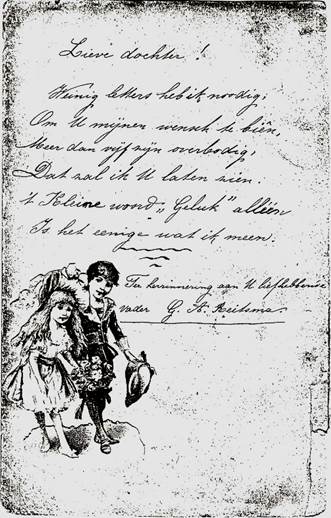 Lieve dochter !
Weinig letters heb ik noodig,
Om U mijnen wensch te biên,
Meer dan vijf zijn overbodig,
Dat zal ik U laten zien.
't Kleine woord „Geluk" alléén
Is het eenige wat ik meen.
Ter herinnering aan U liefhebbende
vader G. A. Reitsma.